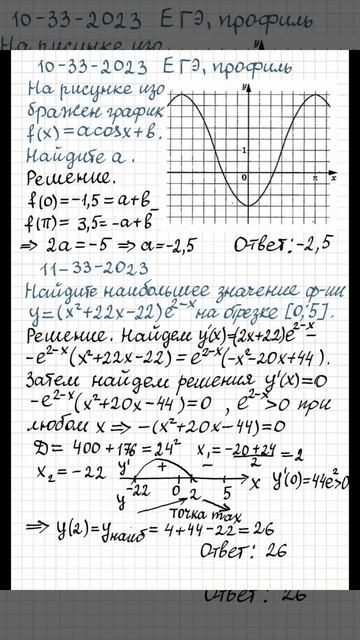 10-33-2023 ЕГЭ, профиль
10-33-2023 ЕГЭ, профиль
На рисунке изо
бражен график
f(x)=acosx+b.
Найдите a.
Решение.
f(0)=-1,5=a+b
f(π)=3,5=-a+b
⇒ 2a=-5 ⇒ a=-2,5 Ответ:-2,5
y
1
0
π
x
11-33-2023
Найдите наибольшее значение ф-ии
y=(x²+22x-22)e^(2-x) на отрезке [0;5].
Решение. Найдем y'(x)=(2x+22)e^(2-x) -
-e^(2-x)(x²+22x-22)=e^(2-x)(-x²-20x+44).
Затем найдем решения y'(x)=0
-e^(2-x)(x²+20x-44)=0, e^(2-x)>0 при
любом x ⇒ -(x²+20x-44)=0
D=400+176=24² x₁=(-20+24)/2=2
x₂=-22 y' + - x y'(0)=44e²>0
y -22 0 2 5
точка max
⇒ y(2)=yнаиб=4+44-22=26
Ответ: 26
Ответ: 26